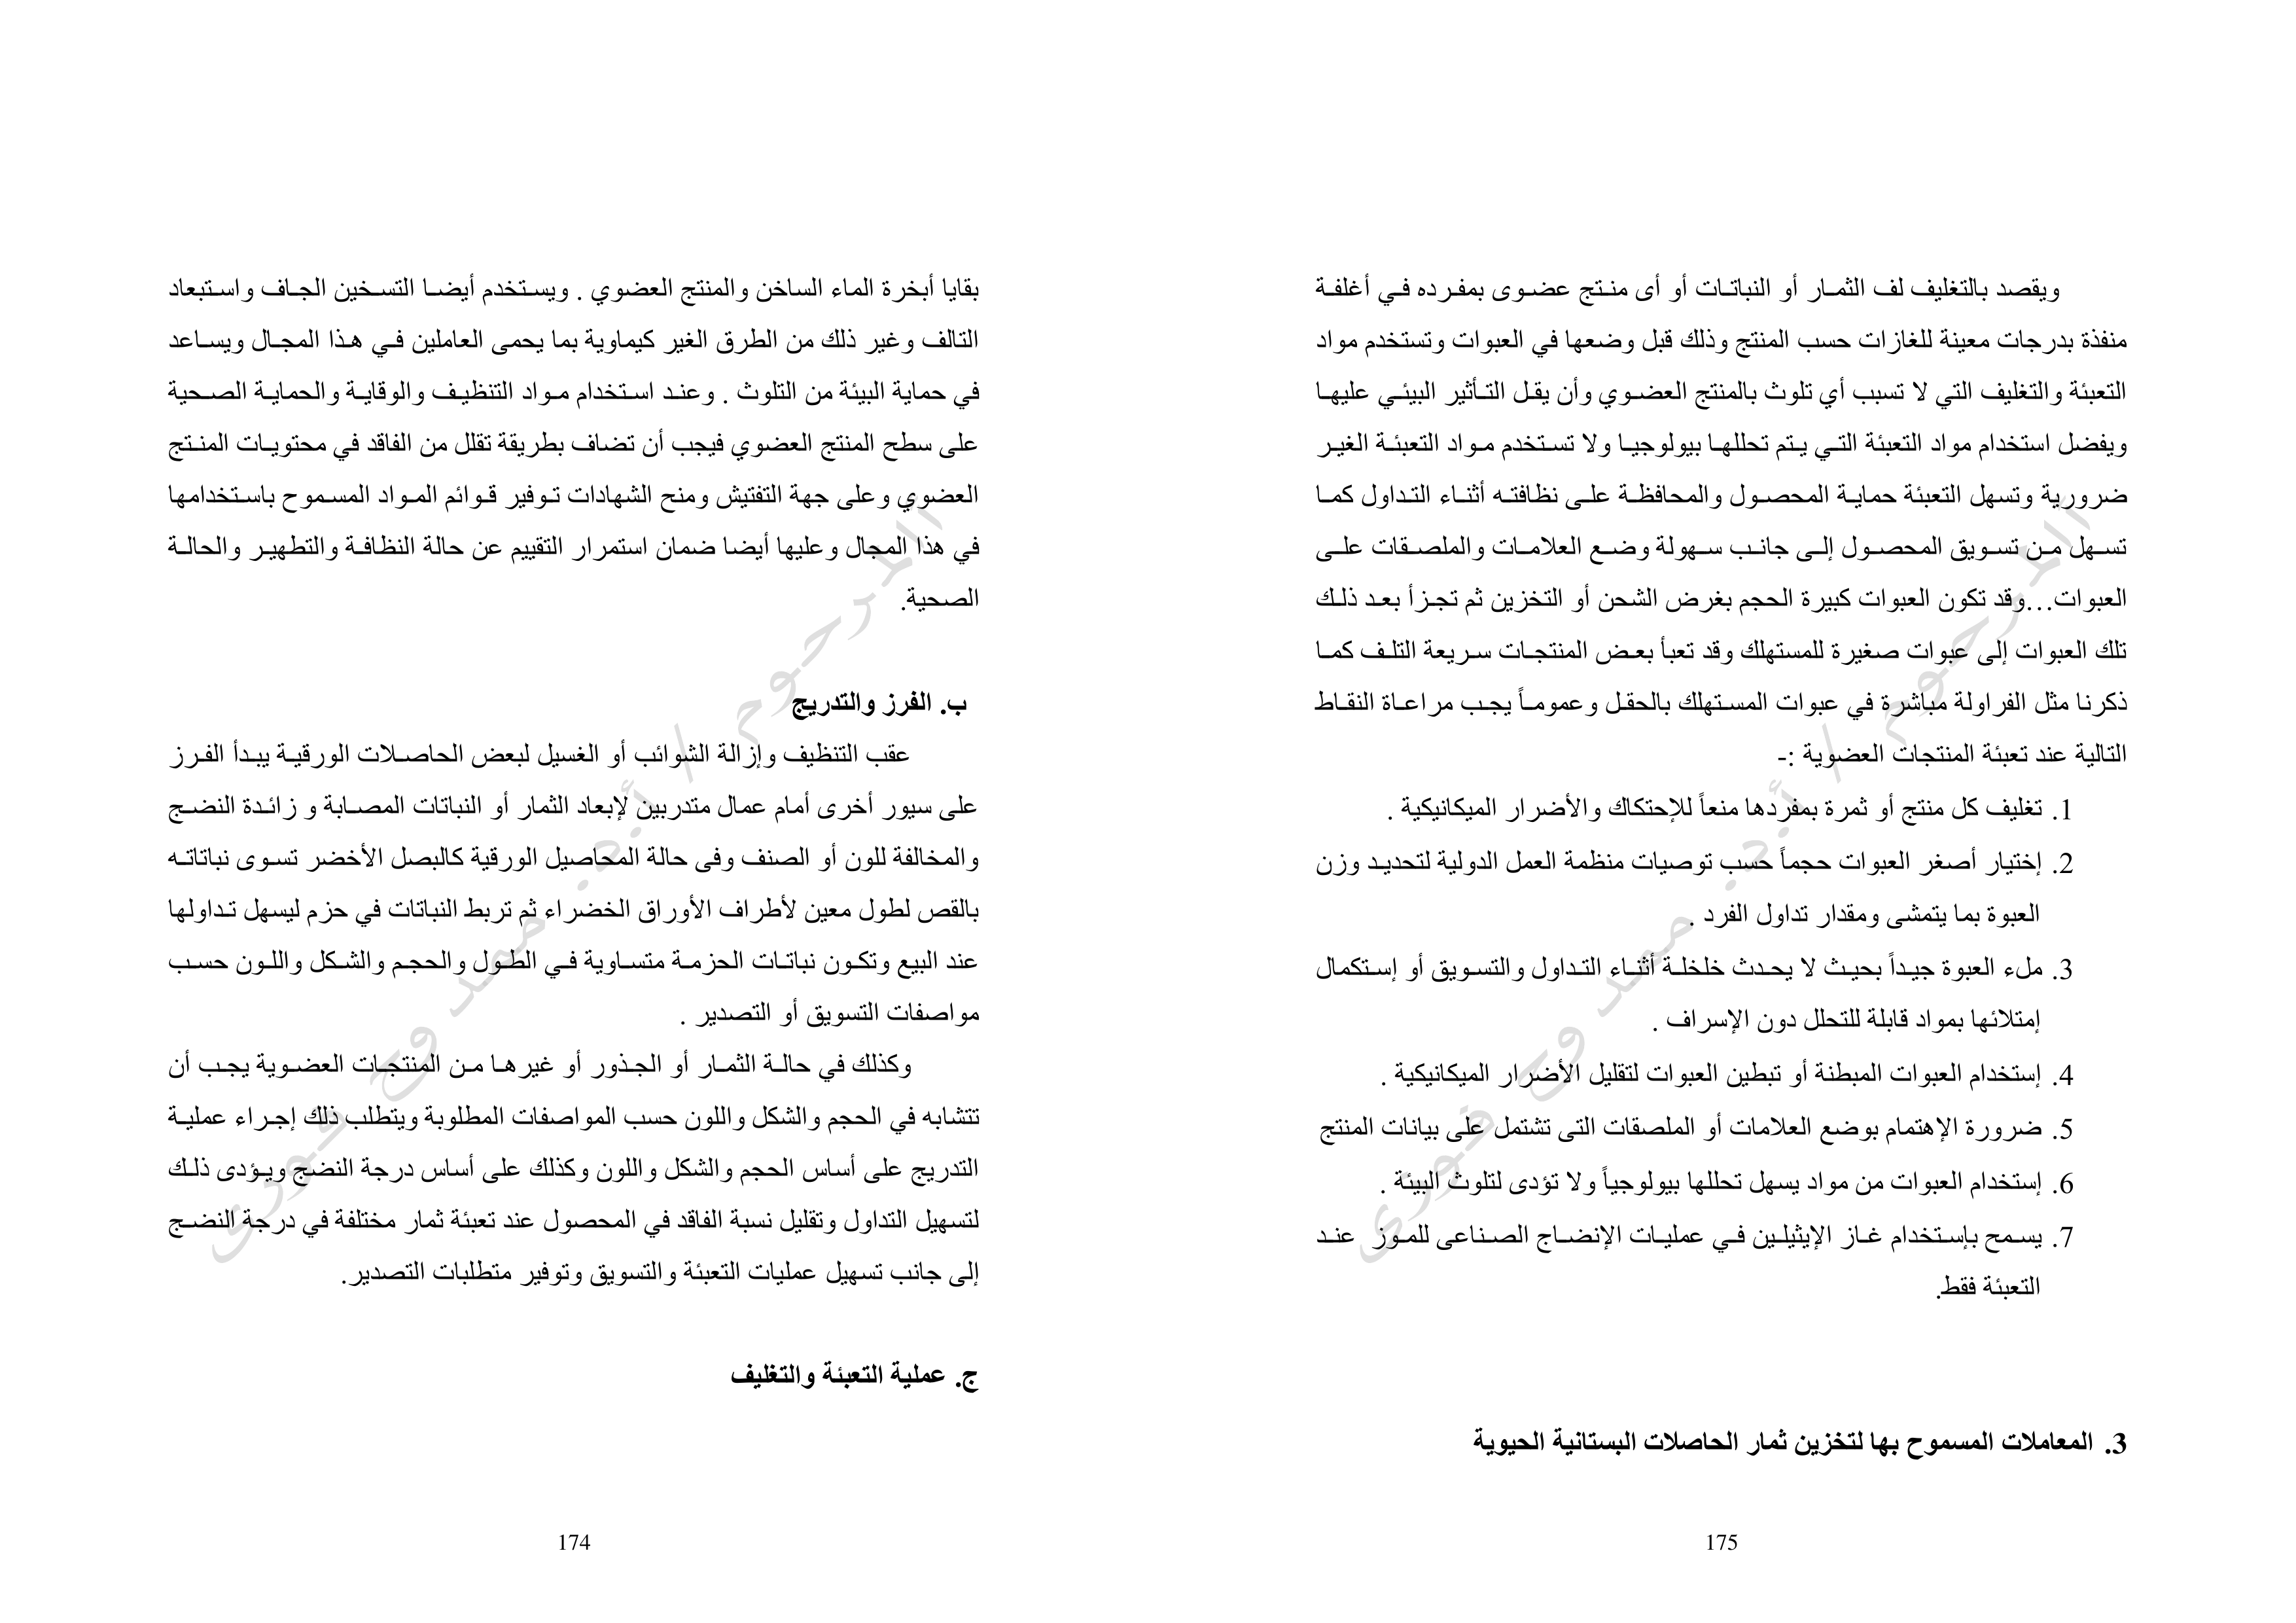 بقايا أبخرة الماء الساخن والمنتج العضوي . ويستخدم أيضا التسخين الجاف واستبعاد
التالف وغير ذلك من الطرق الغير كيماوية بما يحمى العاملين في هذا المجال ويساعد
في حماية البيئة من التلوث . وعند استخدام مواد التنظيف والوقاية والحماية الصحية
على سطح المنتج العضوي فيجب أن تضاف بطريقة تقلل من الفاقد في محتويات المنتج
العضوي وعلى جهة التفتيش ومنح الشهادات توفير قوائم المواد المسموح باستخدامها
في هذا المجال وعليها أيضا ضمان استمرار التقييم عن حالة النظافة والتطهير والحالة
الصحية.
ب. الفرز والتدريج
عقب التنظيف وإزالة الشوائب أو الغسيل لبعض الحاصلات الورقية يبدأ الفرز
على سيور أخرى أمام عمال متدربين لإبعاد الثمار أو النباتات المصابة و زائدة النضج
والمخالفة للون أو الصنف وفى حالة المحاصيل الورقية كالبصل الأخضر تسوى نباتاته
بالقص لطول معين لأطراف الأوراق الخضراء ثم تربط النباتات في حزم ليسهل تداولها
عند البيع وتكون نباتات الحزمة متساوية في الطول والحجم والشكل واللون حسب
مواصفات التسويق أو التصدير .
وكذلك في حالة الثمار أو الجذور أو غيرها من المنتجات العضوية يجب أن
تتشابه في الحجم والشكل واللون حسب المواصفات المطلوبة ويتطلب ذلك إجراء عملية
التدريج على أساس الحجم والشكل واللون وكذلك على أساس درجة النضج ويؤدى ذلك
لتسهيل التداول وتقليل نسبة الفاقد في المحصول عند تعبئة ثمار مختلفة في درجة النضج
إلى جانب تسهيل عمليات التعبئة والتسويق وتوفير متطلبات التصدير.
ج. عملية التعبئة والتغليف
174
المرحوم / أ.د. ممدوح فوزى
ويقصد بالتغليف لف الثمار أو النباتات أو أى منتج عضوى بمفرده في أغلفة
منفذة بدرجات معينة للغازات حسب المنتج وذلك قبل وضعها في العبوات وتستخدم مواد
التعبئة والتغليف التي لا تسبب أي تلوث بالمنتج العضوي وأن يقل التأثير البيئي عليها
ويفضل استخدام مواد التعبئة التي يتم تحللها بيولوجيا ولا تستخدم مواد التعبئة الغير
ضرورية وتسهل التعبئة حماية المحصول والمحافظة على نظافته أثناء التداول كما
تسهل من تسويق المحصول إلى جانب سهولة وضع العلامات والملصقات على
العبوات...وقد تكون العبوات كبيرة الحجم بغرض الشحن أو التخزين ثم تجزأ بعد ذلك
تلك العبوات إلى عبوات صغيرة للمستهلك وقد تعبأ بعض المنتجات سريعة التلف كما
ذكرنا مثل الفراولة مباشرة في عبوات المستهلك بالحقل وعموماً يجب مراعاة النقاط
التالية عند تعبئة المنتجات العضوية :-
1. تغليف كل منتج أو ثمرة بمفردها منعاً للإحتكاك والأضرار الميكانيكية .
2. إختيار أصغر العبوات حجماً حسب توصيات منظمة العمل الدولية لتحديد وزن
العبوة بما يتمشى ومقدار تداول الفرد .
3. ملء العبوة جيداً بحيث لا يحدث خلخلة أثناء التداول والتسويق أو إستكمال
إمتلائها بمواد قابلة للتحلل دون الإسراف .
4. إستخدام العبوات المبطنة أو تبطين العبوات لتقليل الأضرار الميكانيكية .
5. ضرورة الإهتمام بوضع العلامات أو الملصقات التى تشتمل على بيانات المنتج
6. إستخدام العبوات من مواد يسهل تحللها بيولوجياً ولا تؤدى لتلوث البيئة .
7. يسمح بإستخدام غاز الإيثيلين في عمليات الإنضاج الصناعى للموز عند
التعبئة فقط.
3. المعاملات المسموح بها لتخزين ثمار الحاصلات البستانية الحيوية
175
المرحوم / أ.د. ممدوح فوزى